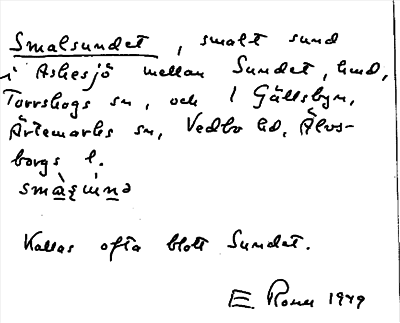 Smalsundet, smalt sund
i Askesjö mellan Sundet, hmd,
Torrskogs sn, och 1 Gällsbyn,
Ärtemarks sn, Vedbo hd, Älvs-
borgs l.
Kallas ofta blott Sundet.
E. Rosu 1949